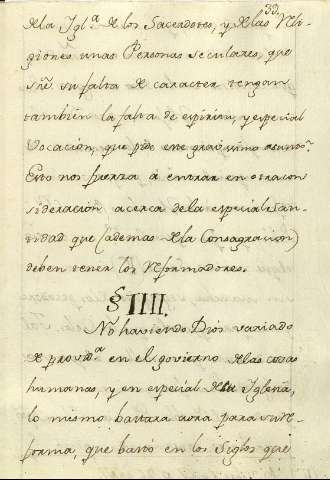 33.
de la Igl.ª de los Sacerdotes, y de las Reli-
giones unas Personas seculares, que
sre. su falta de caracter tengan
tambien la falta de espiritu, y especial
Vocacion, que pide este gravissimo asunto.
Esto nos fuerza à entrar en otra con
sideracion acerca de la especial San-
tidad que (ademas de la Consagracion)
deben tener los Reformadores.
§ IIII.
No haviendo Dios variado
de provid.ª en el govierno de las cosas
humanas, y en especial de su Iglesia,
lo mismo bastara aora para su re-
forma, que bastó en los Siglos que